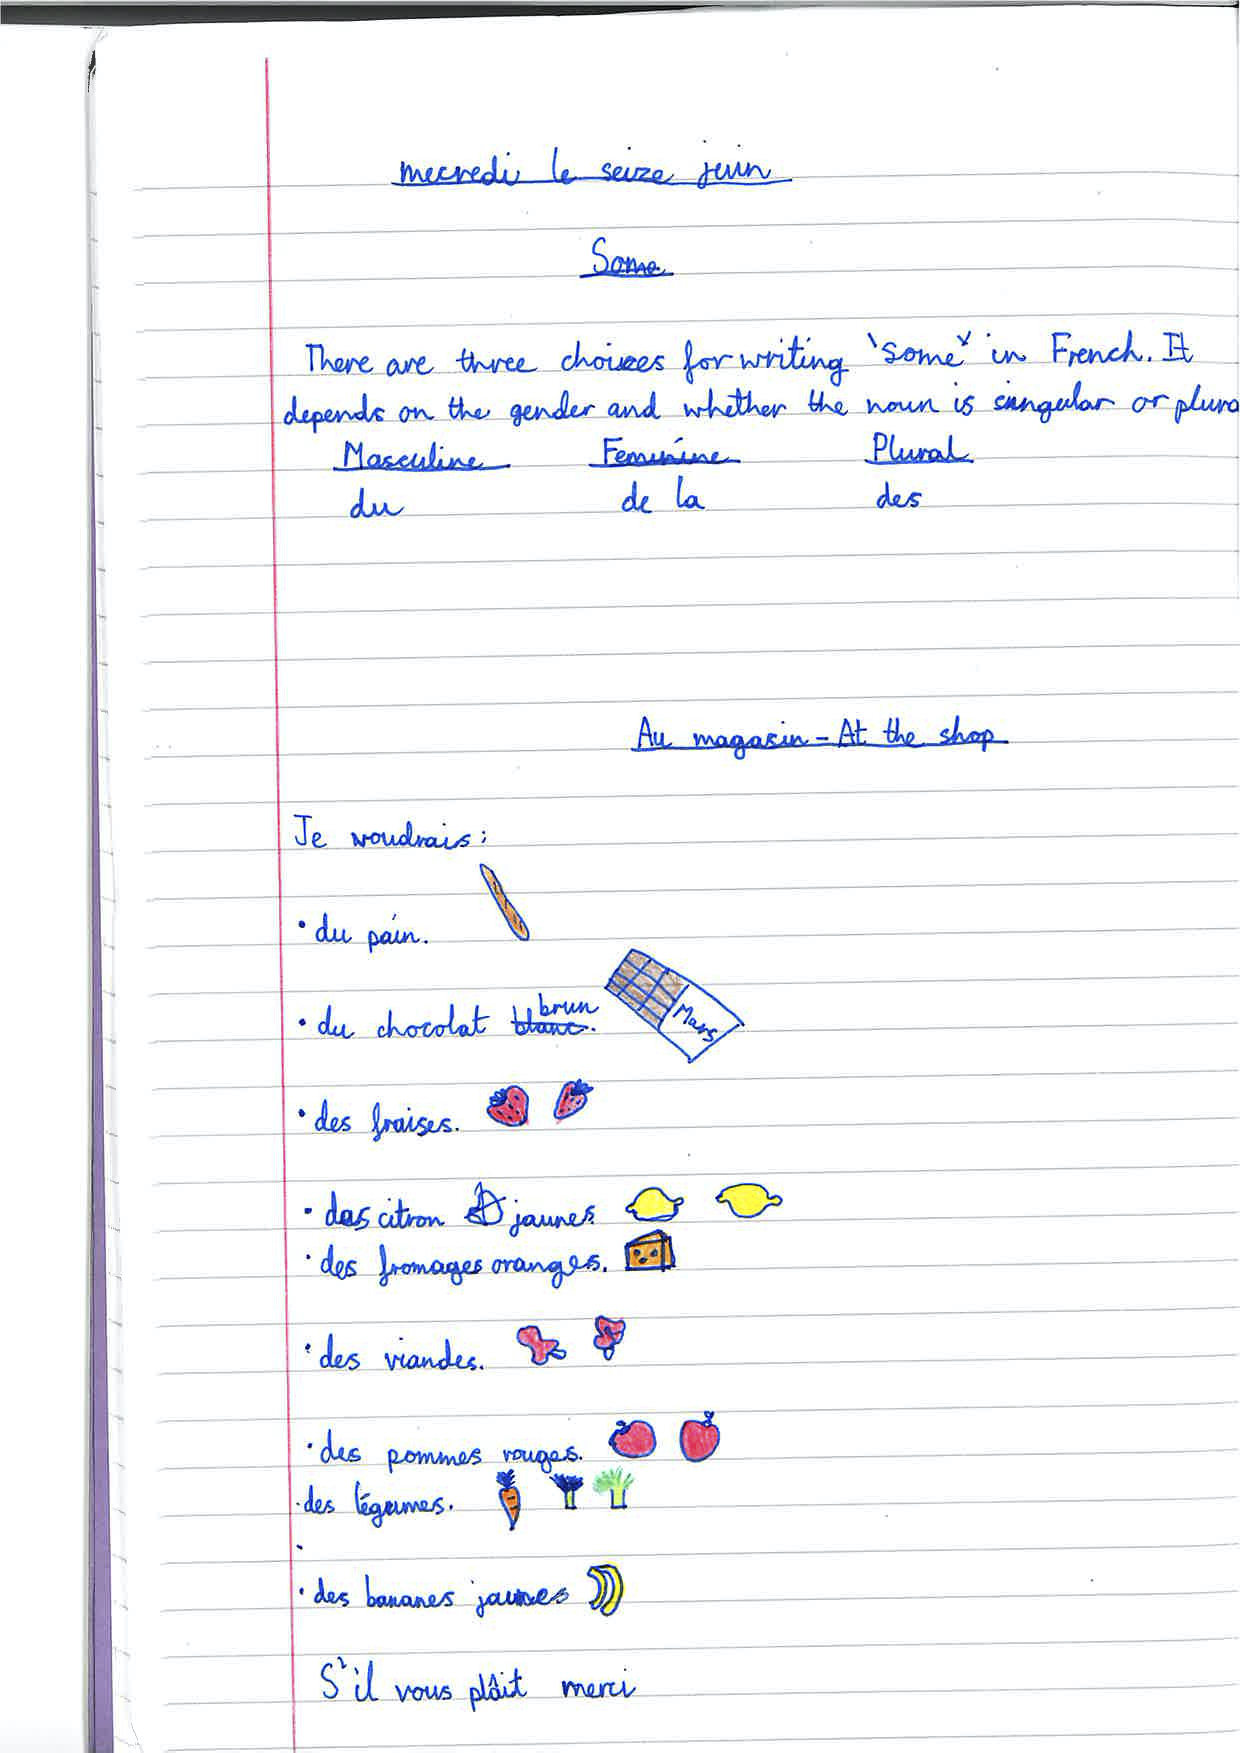 mecredi le seize juin
Some
There are three choices for writing 'some' in French. It
depends on the gender and whether the noun is singular or plura
Masculine Feminine Plural
du de la des
Au magasin - At the shop
Je voudrais:
• du pain.
• du chocolat blanc brun.
Mars
• des fraises.
• des citron jaunes.
• des fromages oranges.
• des viandes.
• des pommes rouges.
• des légumes.
•
• des bananes jaunes
S'il vous plâit merci